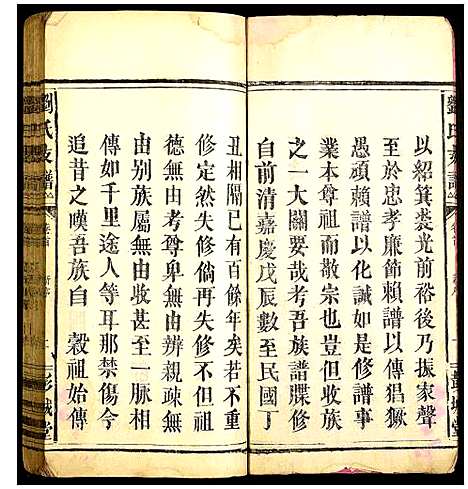 以紹箕裘光前裕後乃振家聲
至於忠孝廉節賴譜以傳倡獗
愚頑賴譜以化誠如是譜以傳
業本尊祖而敬宗也豈但收族
之一大關要哉考吾族譜牒修
自前清嘉慶戊辰數至民國丁
丑相隔已有百餘年矣若不重
修定然失修倘再失修不但祖
德無由考尊卑無由辨親無
由別族屬無由收甚至一脈相
傳如千里途人等耳那禁傷今
追昔之嘆吾族自 穀祖始傳
劉氏支譜
卷首
彭城堂
劉氏支譜
卷首
彭城堂